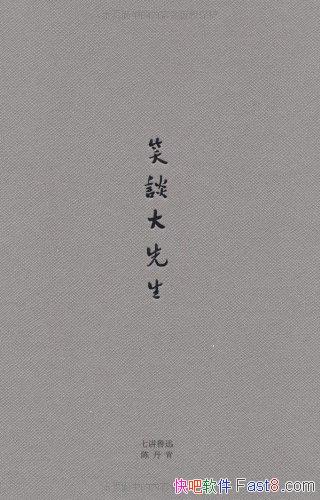 笑談大先生
七讲鲁迅
陈丹青
快吧软件 Fast8.com